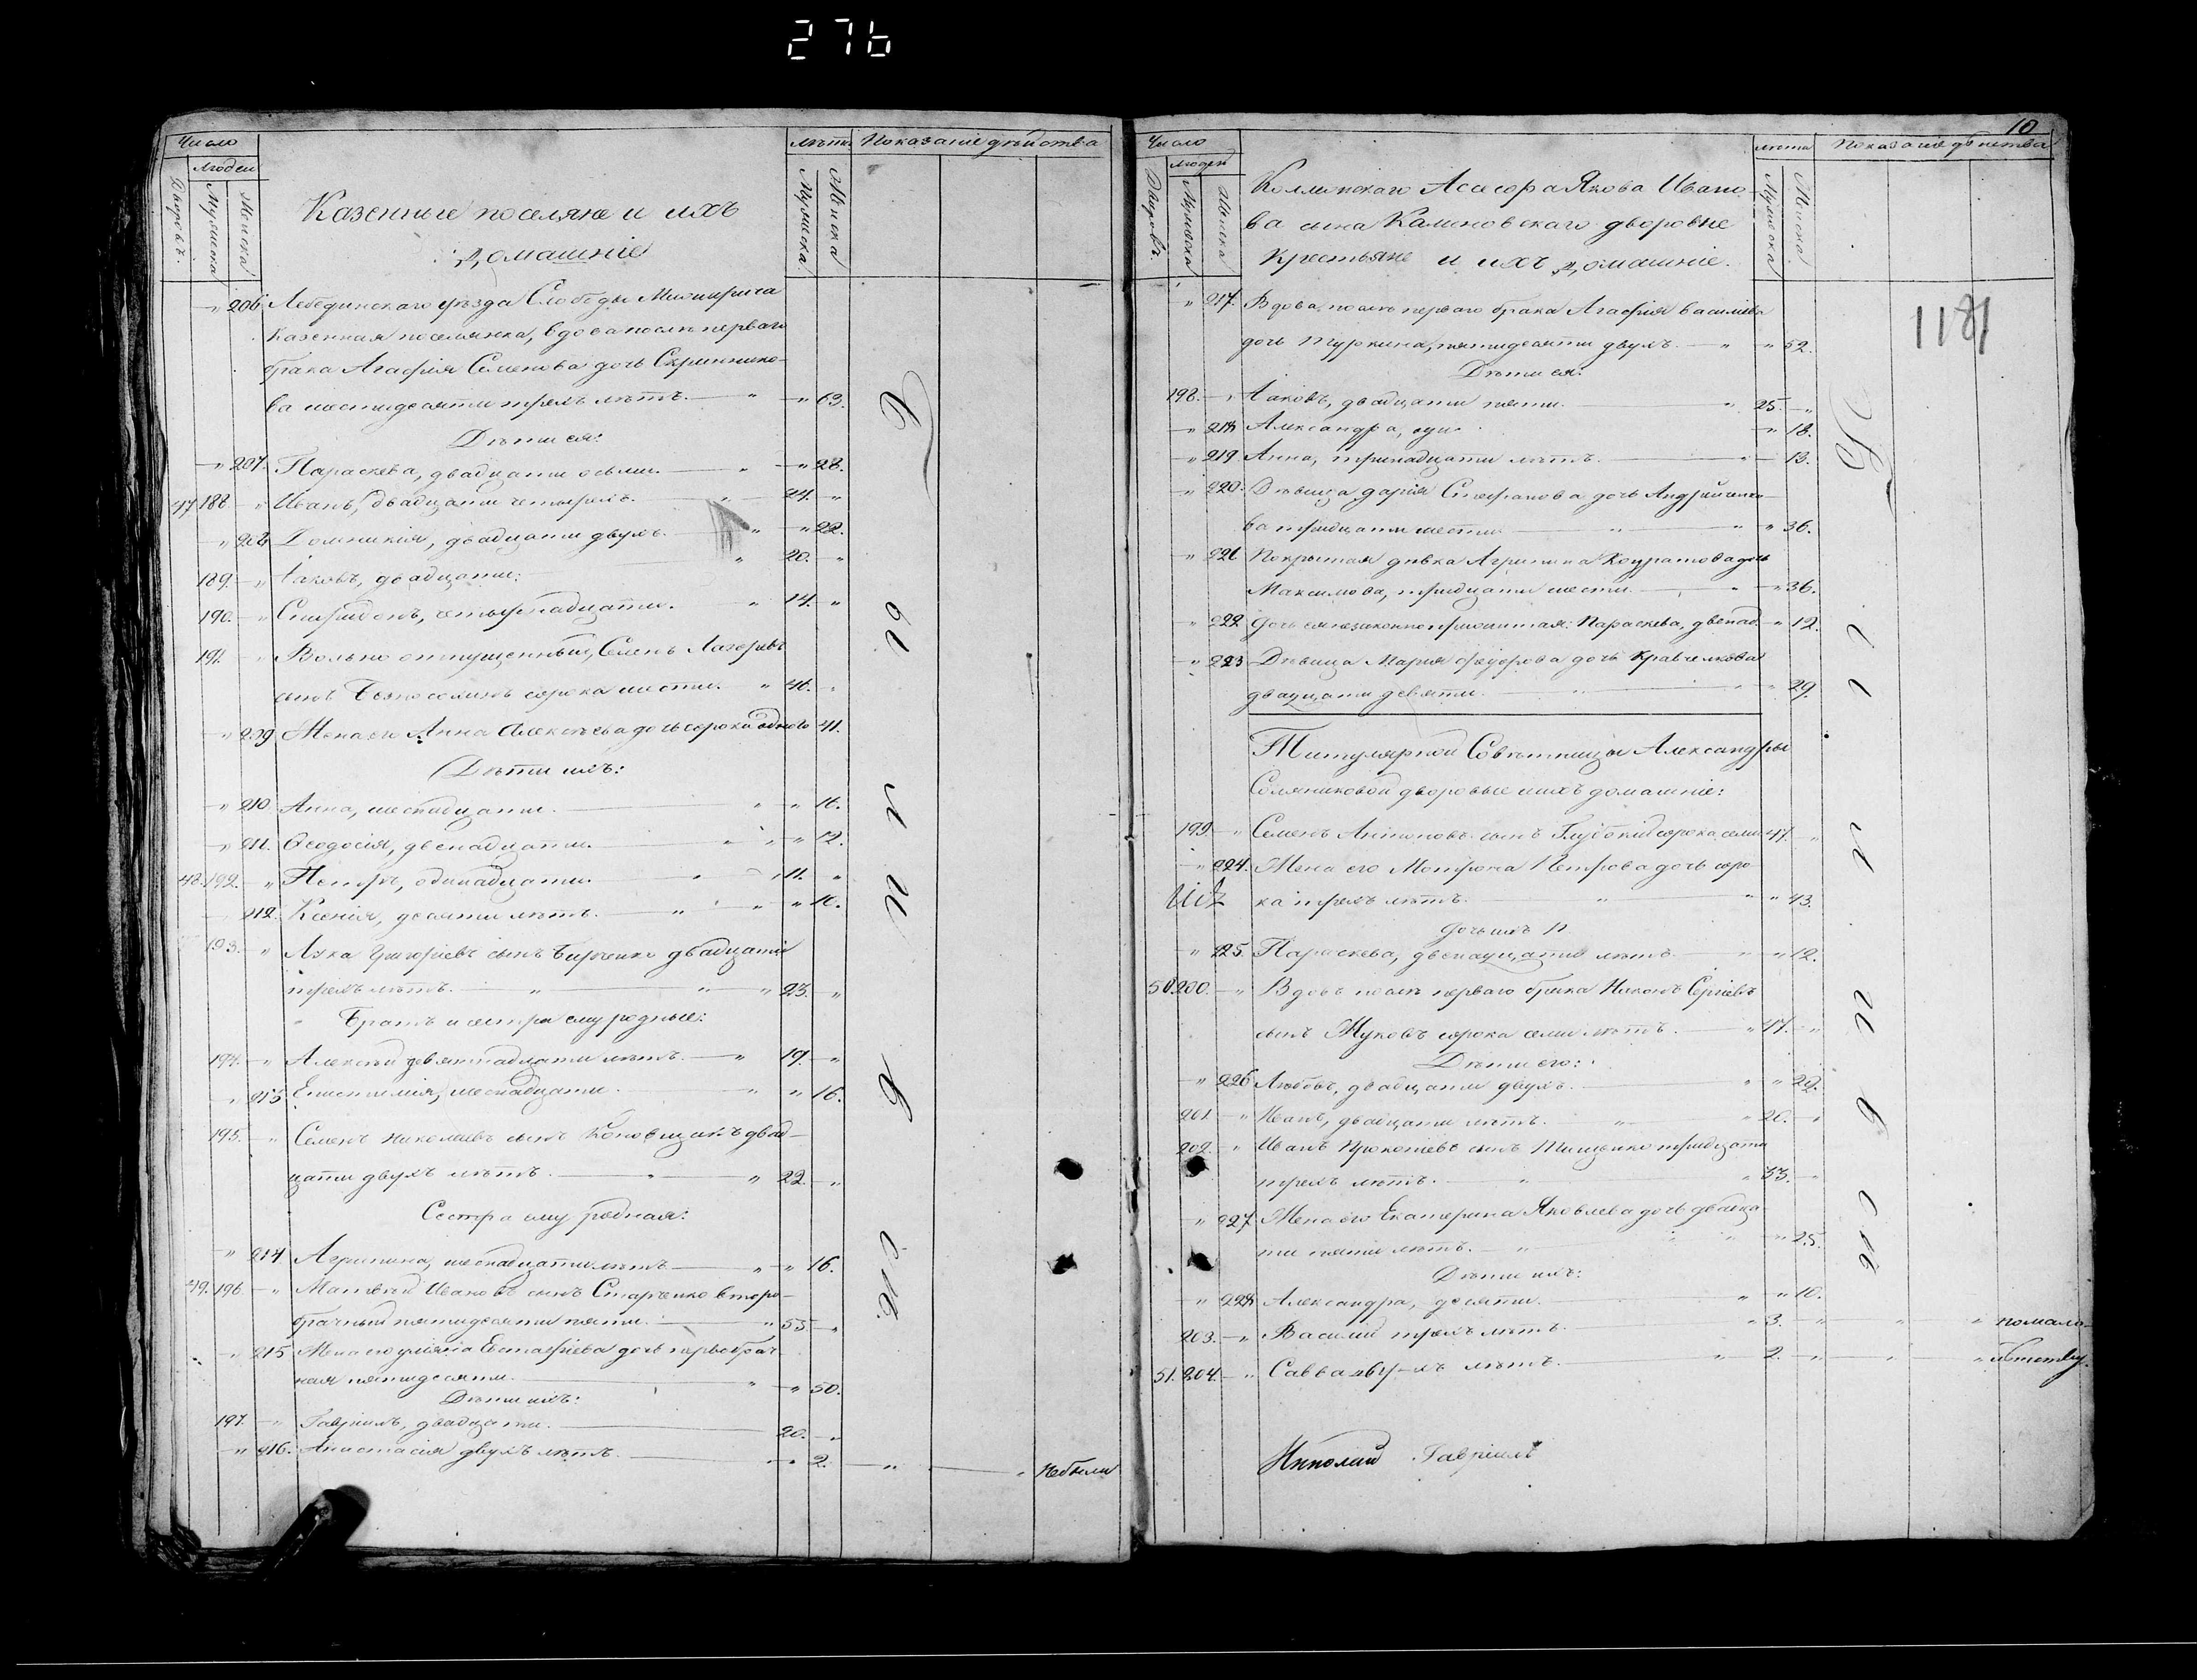 276
Число
людей
Дворовъ.
Мужеска
Женска
Казенные поселяне и ихъ
домашніе
лѣта
Мужеска
Женска
Показаніе дѣйства
" 206 Лебединскаго уѣзда Слободы
казенная поселянка, вдова послѣ перваго
брака Агафія Семенова дочь Скриннико-
ва шестидесяти трехъ лѣтъ. " " 63.
Дѣти ея:
" 207. Параскева, двадцати осьми. " " 28.
47 188 " Иванъ, двадцати четырехъ. " 24. "
" 208 Домникія, двадцати двухъ. " " 22.
189. " Іаковъ, двадцати: " 20. "
190. " Спиридонъ, четырнадцати. " 14. "
191. " Вольно отпущенный, Семенъ Лазаревъ
сынъ сорока шести. " 46. "
" 209 Жена его Анна Алексѣева дочь сорока одного 41.
Дѣти ихъ:
" 210 Анна, шестнадцати. " " 16.
" 211. Ѳеодосія, двенадцати. " " 12.
48. 192. " Петръ, одинадцати. " 11. "
212. Ксенія, десяти лѣтъ. " " " 10.
193. " Лука Григоріевъ сынъ двадцати
трехъ лѣтъ. " " " 23. "
Братъ и сестра ему родные:
194. " Алексѣй девятнадцати лѣтъ. " 19. "
" 213 Епистимія, шестнадцати. " " 16.
195. " Семенъ Николаевъ сынъ двад-
цати двухъ лѣтъ. " " 22. "
Сестра ему родная:
" 214 Агрипина, шестнадцати лѣтъ " " 16.
49. 196 " Матвѣй Ивановъ сынъ Старченко второ-
брачный пятидесяти пяти. " 55 "
" 215 Жена его Уліяна Евстафіева дочь первобрач-
ная пятидесяти. " " 50.
Дѣти ихъ:
197. " Гавріилъ, двадцати. 20. "
" 216. Анастасія двухъ лѣтъ. " 2. " " Небыли
10
Число
людей
Дворовъ.
Мужеска
Женска
Коллежскаго Асесора Якова Ивано-
ва сына Калиновскаго дворовые
Крестьяне и ихъ домашніе.
лѣта
Мужеска
Женска
Показаніе дѣйства
1181
" 217. Вдова послѣ перваго брака Агафія Василіева
дочь Туркина, пятидесяти двухъ. " " 52.
Дѣти ея:
198. " Іаковъ, двадцати пяти. " 25. "
" 218 Александра, " 18.
" 219 Анна, тринадцати лѣтъ. " 13.
" 220. Дѣвица Дарія Стефанова дочь
ва тридцати шести. " " " 36.
" 221 Покрытая дѣвка Агрипина Кондратова дочь
Максимова, тридцати шести. " " 36.
" 222 Дочь ея незаконноприжитая: Параскева, двенад. " 12.
" 223 Дѣвица Марія Ѳеодорова дочь
двадцати девяти. " " " 29.
Титулярной Совѣтницы Александры
Соляниковой дворовые и ихъ домашніе:
199 " Семенъ Антоновъ сынъ Глубокій сорока семи 47. "
" 224. Жена его Мотрона Петрова дочь соро-
ка трехъ лѣтъ. " " " 43.
Дочь ихъ
" 225. Параскева, двенадцати лѣтъ. " " 12.
50. 200. " Вдовъ послѣ перваго брака Никонъ Сергіевъ
сынъ Жуковъ сорока семи лѣтъ. " 47. "
Дѣти его:
" 226 Любовь, двадцати двухъ. " " 22.
201. " Иванъ, двадцати лѣтъ. " " 20. "
202. " Иванъ Прокопіевъ сынъ Тищенко тридцати
трехъ лѣтъ. " " 33. "
" 227 Жена его Екатерина Яковлева дочь двадца-
ти пяти лѣтъ. " " 25.
Дѣти ихъ:
" 228 Александра, десяти. " " 10.
203. " Василій трехъ лѣтъ. " 3. " " " помало-
51. 204. " Савва двухъ лѣтъ. " 2. " " " лѣтству.
Николай Гавріилъ